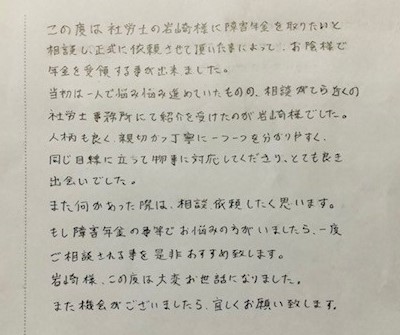 この度は社労士の岩崎様に障害年金を取りたいと
相談し、正式に依頼させて頂いた事によって、お陰様で
年金を受領する事が出来ました。
当初は一人で悩み悩み進めていたものの、相談がてら近くの
社労士事務所にて紹介を受けたのが岩崎様でした。
人柄も良く、親切かつ丁寧に一つ一つを分かりやすく、
同じ目線に立って物事に対応してくださり、とても良き
出会いでした。
また何かあった際は、相談、依頼したく思います。
もし障害年金の事等でお悩みの方がいましたら、一度
ご相談される事を是非おすすめ致します。
岩崎様、この度は大変お世話になりました。
また機会がございましたら、宜しくお願い致します。